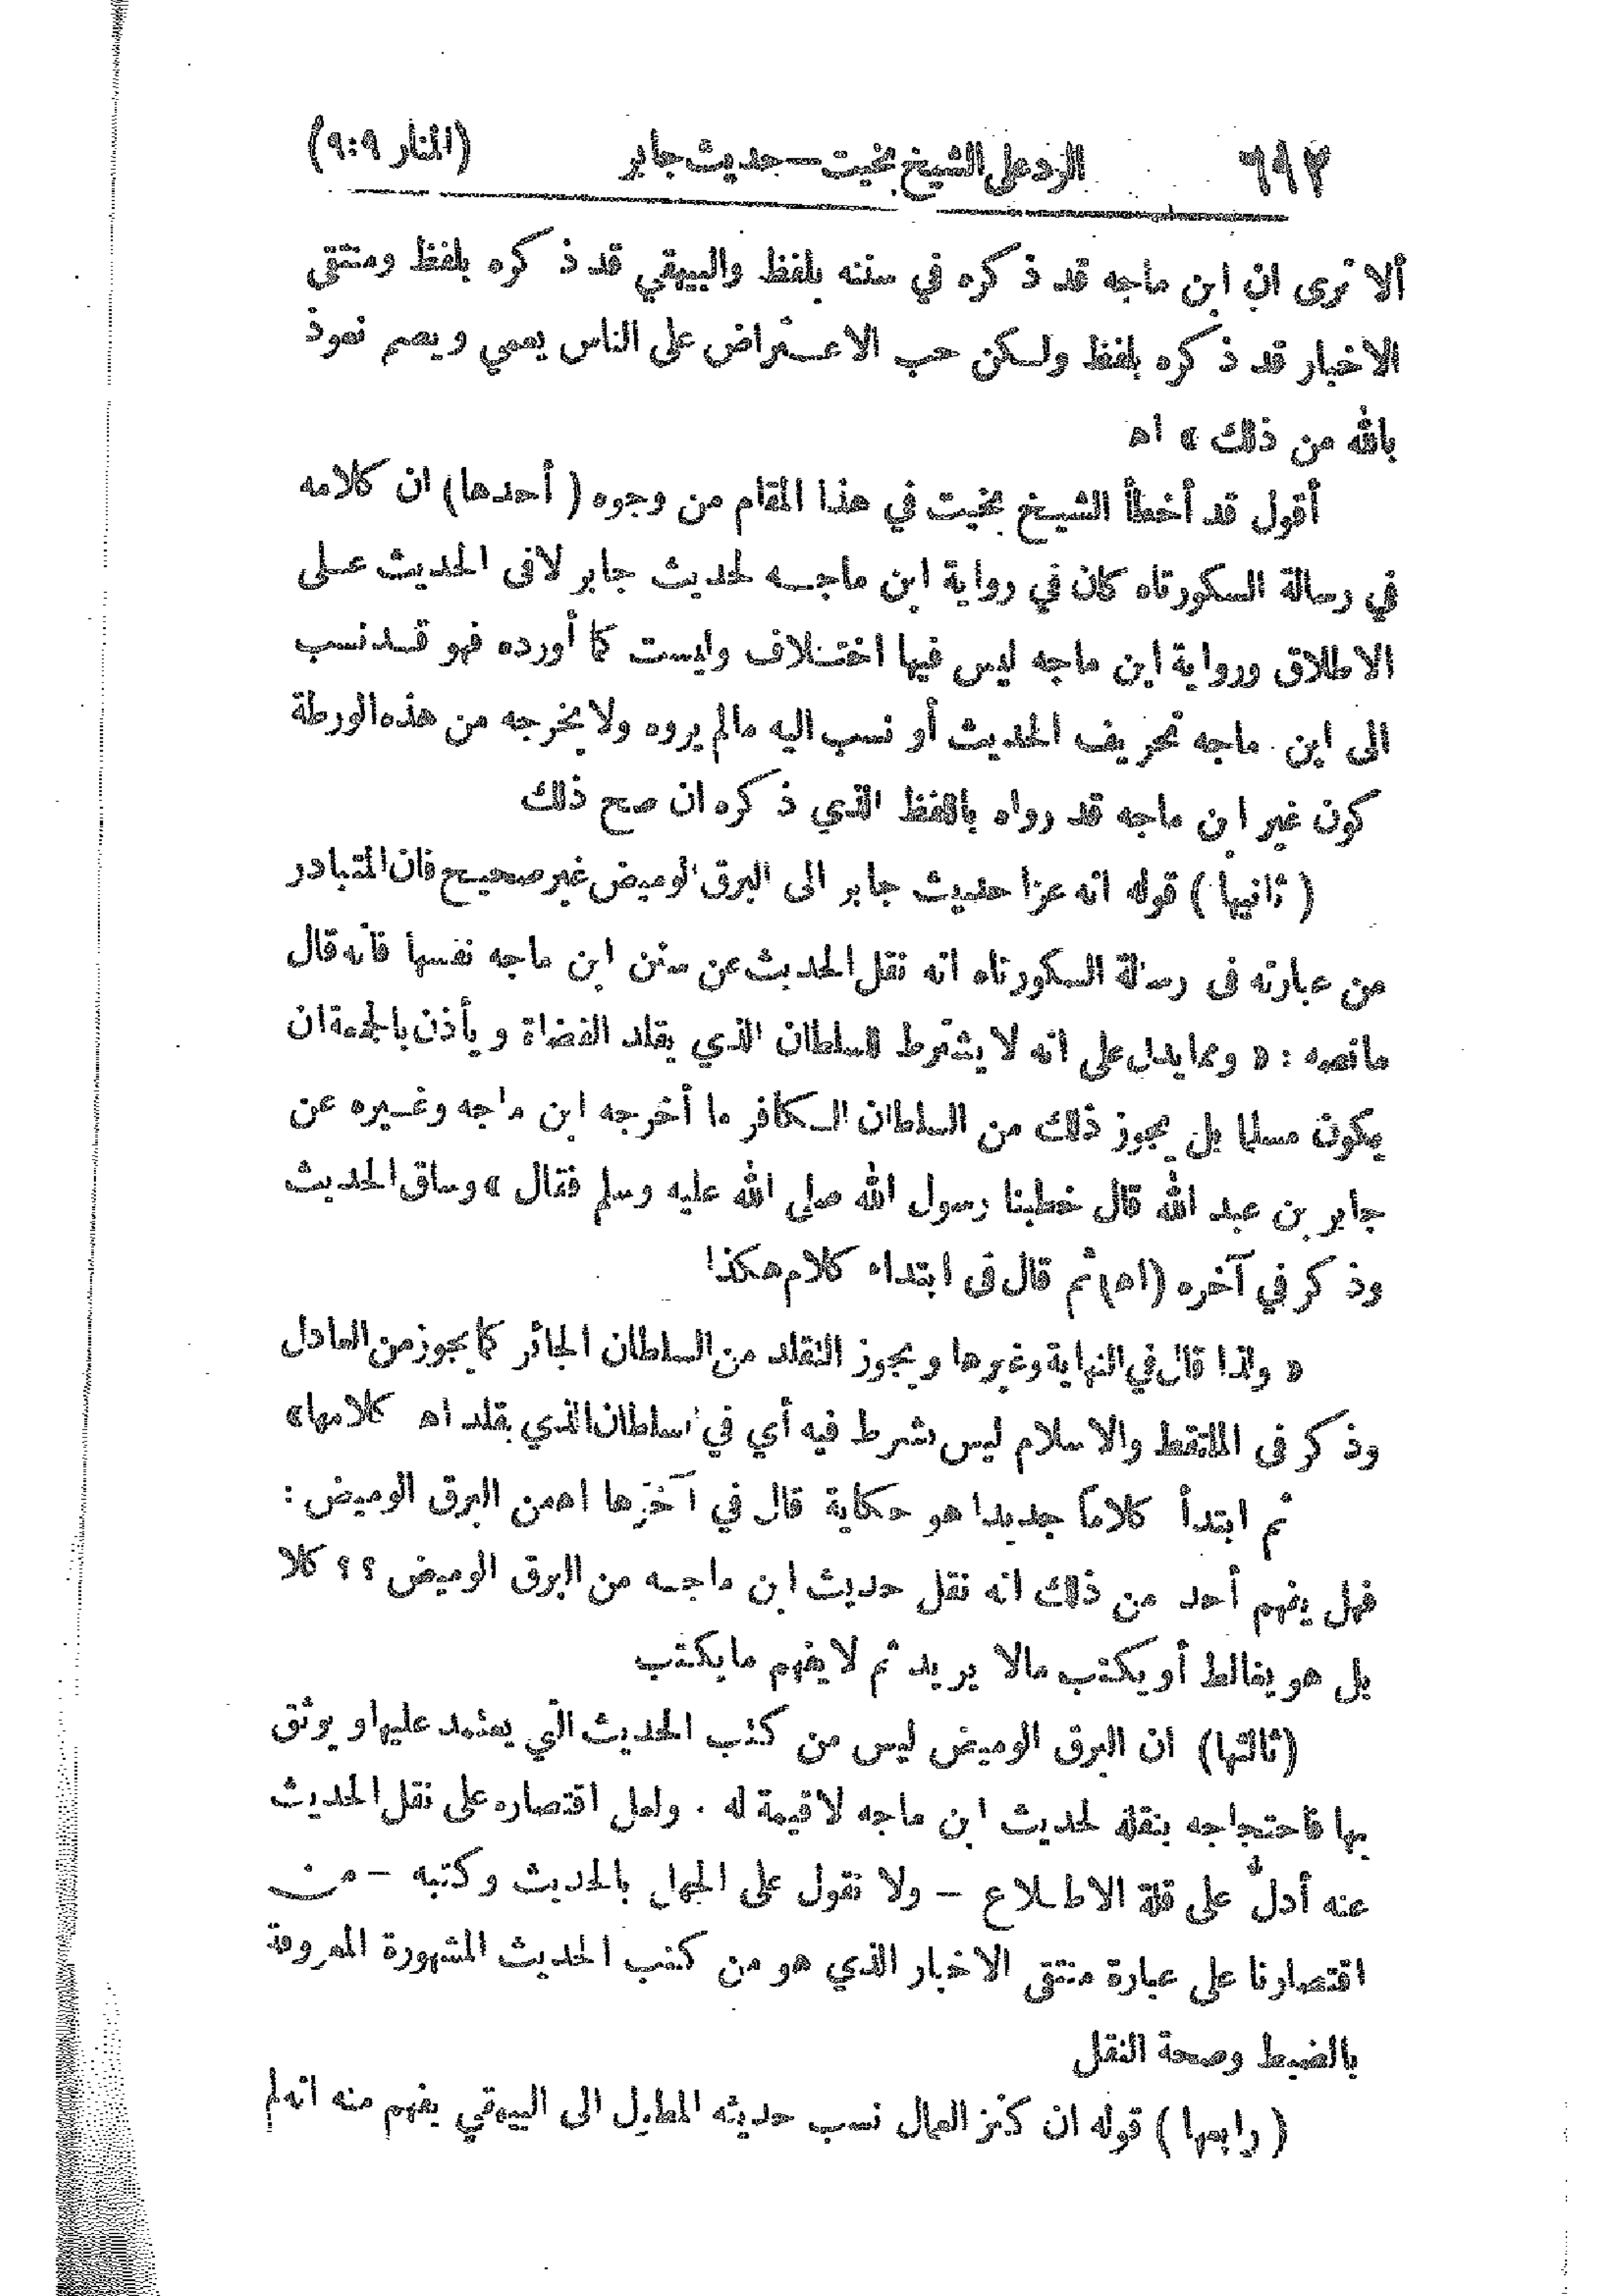 ٦٩٢ الرد على الشيخ بخيت — حديث جابر (المنار ٩:٩)
ألا ترى ان ابن ماجه قد ذكره في سننه بلفظ والبيهقي قد ذكره بلفظ ومنتقى
الاخبار قد ذكره بلفظ ولكن حب الاعتراض على الناس يعمي ويصم نعوذ
بالله من ذلك » اه
أقول قد أخطأ الشيخ بخيت في هذا المقام من وجوه (أحدها) ان كلامه
في رسالة السكورتاه كان في رواية ابن ماجه لحديث جابر لافى الحديث على
الاطلاق ورواية ابن ماجه ليس فيها اختلاف وليست كما أورده فهو قد نسب
الى ابن ماجه تحريف الحديث أو نسب اليه مالم يروه ولا يخرجه من هذه الورطة
كون غير ابن ماجه قد رواه باللفظ الذي ذكره ان صح ذلك
(ثانيها) قوله انه عزا حديث جابر الى البرق الوميض غير صحيح فان المتبادر
من عبارته فى رسالة السكورتاه انه نقل الحديث عن سنن ابن ماجه نفسها فأنه قال
مانصه : « ومما يدل على انه لا يشترط للسلطان الذي يقلد القضاة ويأذن بالجمعة ان
يكون مسلما بل يجوز ذلك من السلطان الكافر ما أخرجه ابن ماجه وغيره عن
جابر بن عبد الله قال خطبنا رسول الله صلى الله عليه وسلم فقال » وساق الحديث
وذكر في آخره (اه) ثم قال فى ابتداء كلام هكذا
« ولذا قال في النهاية وغيرها ويجوز التقلد من السلطان الجائر كما يجوز من العادل
وذكر فى الملتقط والاسلام ليس بشرط فيه أي في السلطان الذي يقلد اه كلامها»
ثم ابتدأ كلاماً جديدا هو حكاية قال في آخرها اه من البرق الوميض :
فهل يفهم أحد من ذلك انه نقل حديث ابن ماجه من البرق الوميض ؟؟ كلا
بل هو يغالط أو يكتب مالا يريد ثم لا يفهم مايكتب
(ثالثها) ان البرق الوميض ليس من كتب الحديث التي يعتمد عليها ويوثق
بها فاحتجاجه بنقله لحديث ابن ماجه لا قيمة له . ولعل اقتصاره على نقل الحديث
عنه أدلّ على قلة الاطلاع – ولا نقول على الجهل بالحديث وكتبه – من
اقتصارنا على عبارة منتقى الاخبار الذي هو من كتب الحديث المشهورة المعروفة
بالضبط وصحة النقل
(رابعها) قوله ان كنز العمال نسب حديثه المطول الى البيهقي يفهم منه انه لم